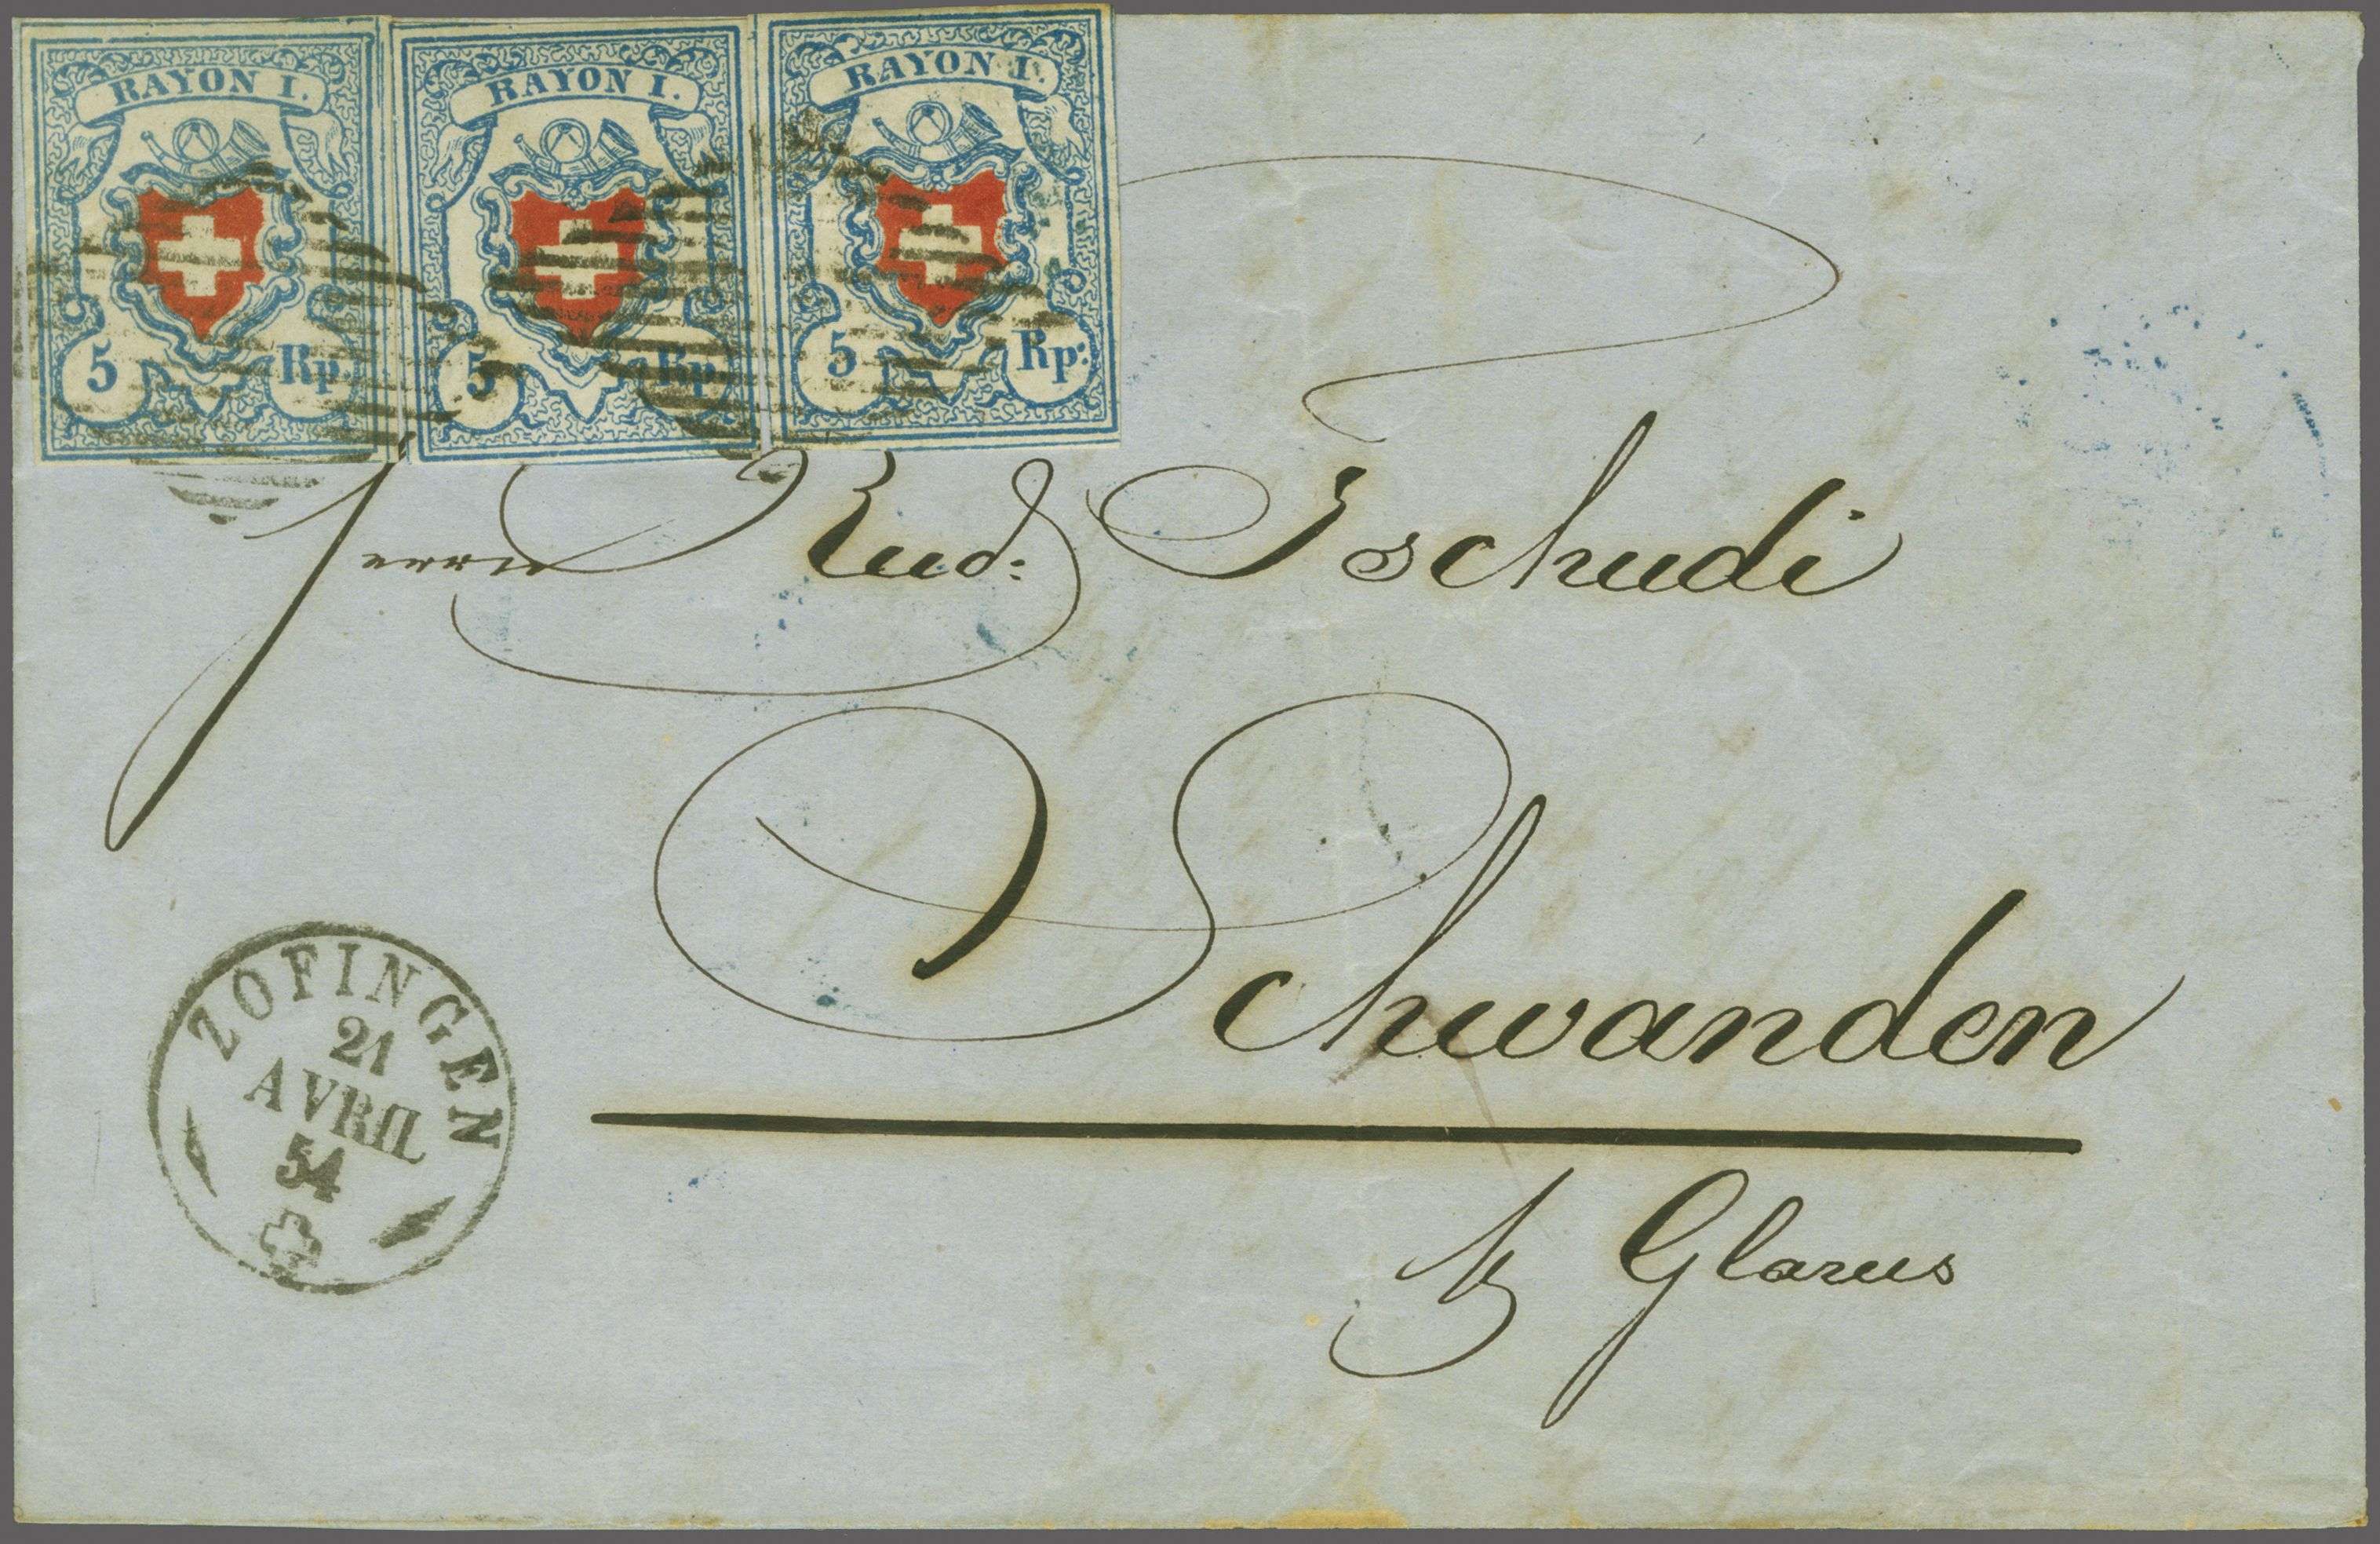 RAYON I. RAYON I. RAYON I.
5 Rp. 5 Rp. 5 Rp:
Herrn Rud: Tschudi
Schwanden
b/ Glarus
ZOFINGEN
21
AVRIL
54